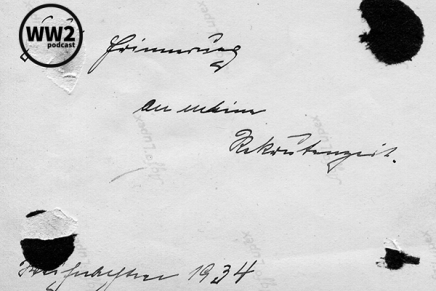 WW2
podcast
Erinnerung
an meine
Rekrutenzeit.
1934